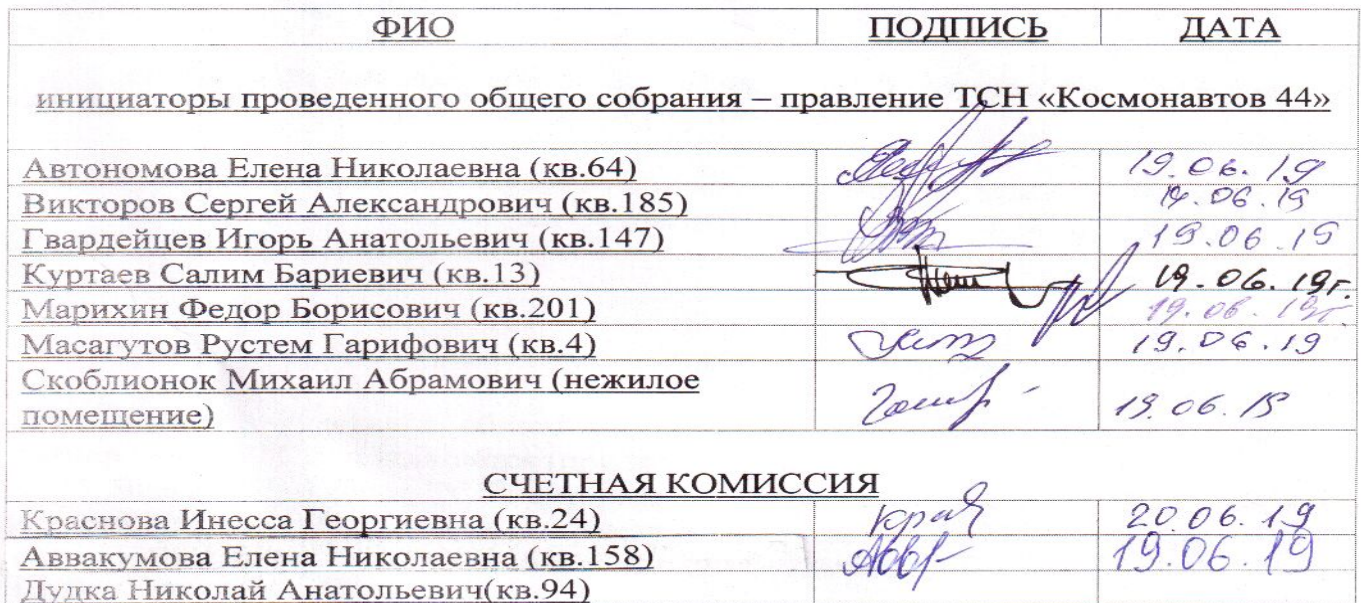 ФИО ПОДПИСЬ ДАТА
инициаторы проведенного общего собрания – правление ТСН «Космонавтов 44»
Автономова Елена Николаевна (кв.64) 19.06.19
Викторов Сергей Александрович (кв.185) 19.06.19
Гвардейцев Игорь Анатольевич (кв.147) 19.06.19
Куртаев Салим Бариевич (кв.13) 19.06.19г.
Марихин Федор Борисович (кв.201) 19.06.19г.
Масагутов Рустем Гарифович (кв.4) 19.06.19
Скоблионок Михаил Абрамович (нежилое
помещение) 19.06.19
СЧЕТНАЯ КОМИССИЯ
Краснова Инесса Георгиевна (кв.24) 20.06.19
Аввакумова Елена Николаевна (кв.158) 19.06.19
Дудка Николай Анатольевич(кв.94)